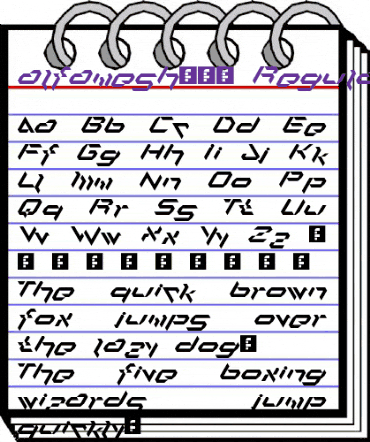 alfamesh Regula
Aa Bb Cc Dd Ee
Ff Gg Hh Ii Jj Kk
Ll Mm Nn Oo Pp
Qq Rr Ss Tt Uu
Vv Ww Xx Yy Zz
The quick brown
fox jumps over
the lazy dog
The five boxing
wizards jump
quickly